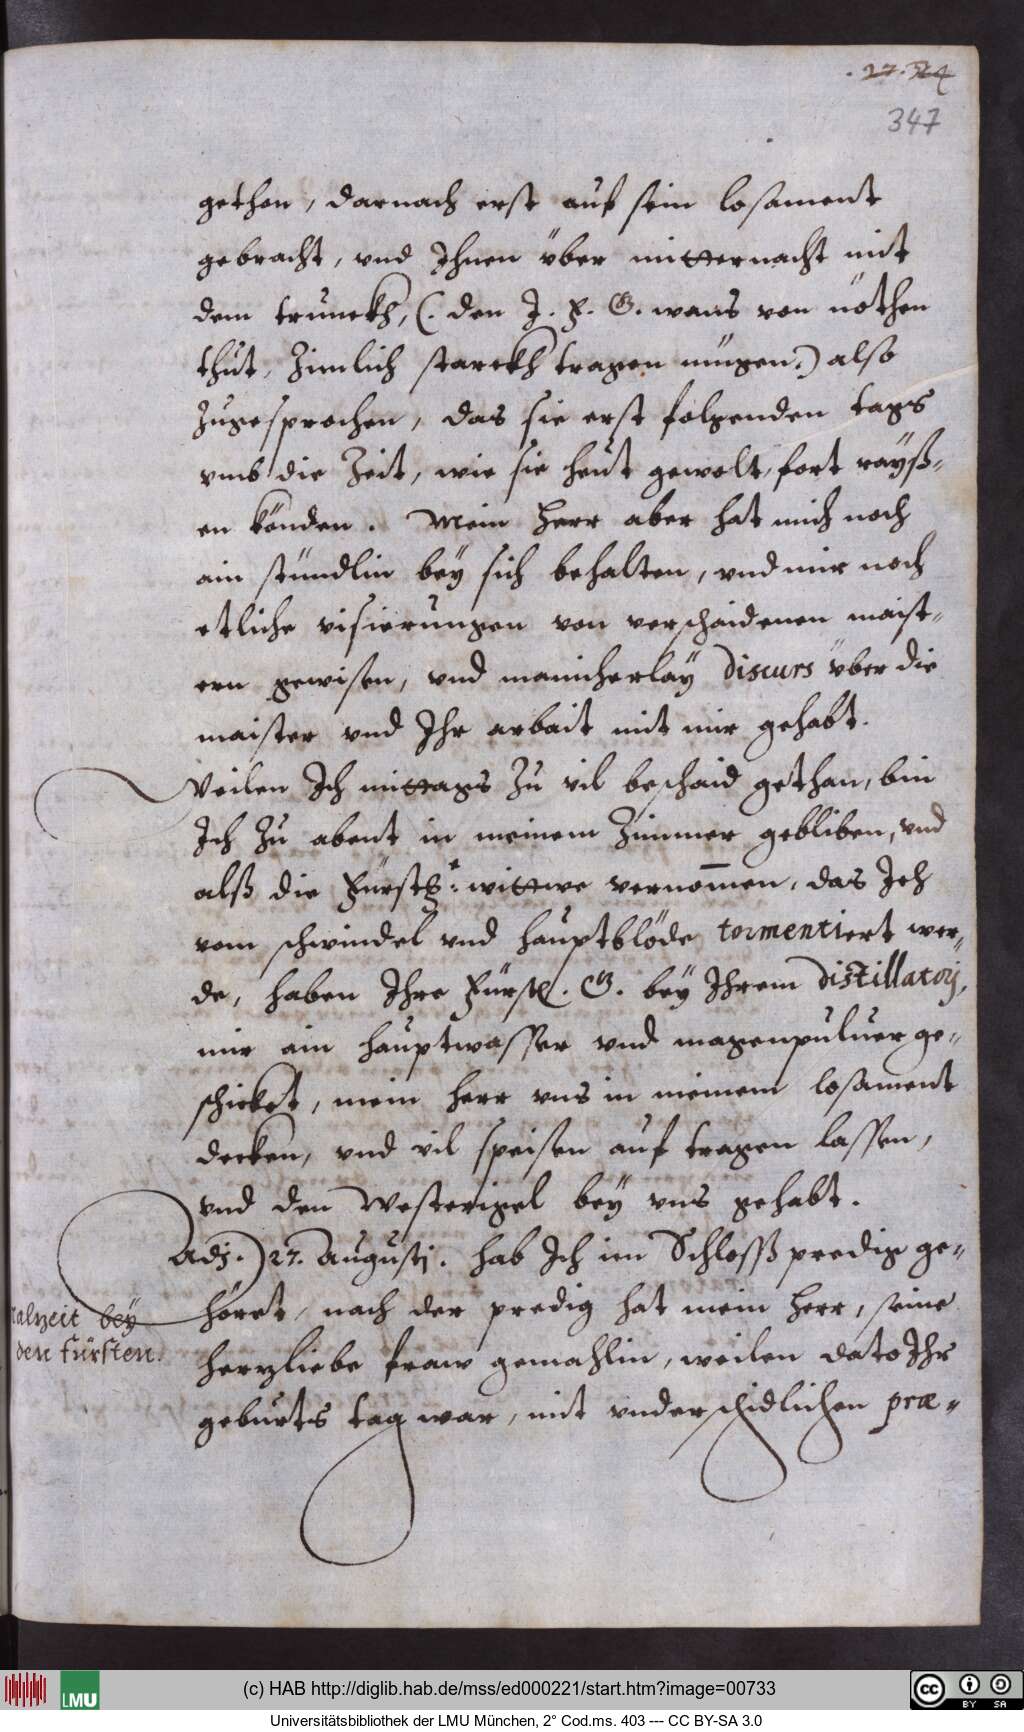 347
gethon, darnach erst auf sein losament
gebracht, vnd Ihnen über mitternacht mit
dem trunckh, (. den J. F. G. wans von nöthen
thut, zimlich starckh tragen mügen.) also
zugesprochen, das sie erst folgenden tags
vmb die Zeit, wie sie heut gewolt, fort rayß-
en könden. Mein Herr aber hat mich noch
ain stündlin bey sich behalten, vnd mir noch
etliche visierungen von verschaidenen maist-
ern gewisen, vnd manicherlay Discurs über die
maister vnd Ihr arbait mit mir gehabt.
Weilen Ich mittags zu vil beschaid gethan, bin
Ich zu abent in meinem Zimmer gebliben, vnd
alß die Fürstl: wittwe vernom̅en, das Ich
vom schwindel vnd hauptblöde tormentiert wer-
de, haben Ihre Fürstl. G. bey Ihrem Distillatorj,
mir ain hauptwasser vnd magenpuluer ge-
schicket, mein herr vns in meinem losament
decken, vnd vil speisen auf tragen lassen,
vnd den Westerigel bey vns gehabt.
Adj. 27. Augustj. hab Ich im Schloss predig ge-
höret, nach der predig hat mein herr, seine
herzliebe fraw gemahlin, weilen dato Ihr
geburts tag war, mit vnderschidlichen præ-
alzeit bey
den fürsten.
(c) HAB http://diglib.hab.de/mss/ed000221/start.htm?image=00733
Universitätsbibliothek der LMU München, 2° Cod.ms. 403 --- CC BY-SA 3.0
LMU
CC BY SA